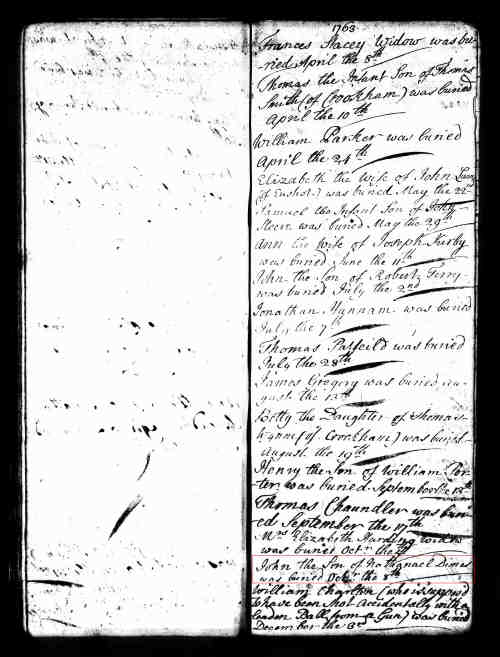 1763
Frances Stacey Widow was bu-
ried April the 8th
Thomas the Infant Son of Thomas
Smith (of Crookham) was buried
April the 10th
William Parker was buried
April the 24th
Elizabeth the Wife of John
was buried May the 22d
Samuel the Infant Son of John
was buried May the 29th
Ann the Wife of Joseph Kirby
was buried June the 11th
John the Son of Robert Terry
was buried July the 2nd
Jonathan Hunnam was buried
July the 7th
Thomas Patfeild was buried
July the 28th
James Gregory was buried Au-
gust the 13th
Betty the Daughter of Thomas
(of Crookham) was buried
August the 19th
Henry the Son of William Por-
ter was buried September the 12th
Thomas Chaundler was buri-
ed September the 17th
Mrs Elizabeth Harding Widow
was buried Octr the
John the Son of Nathanael Dimes
was buried the 8th
William Charlton (who is suppos'd
to have been shot accidentally with a
Leaden Ball from a Gun) was buried
December the 3rd